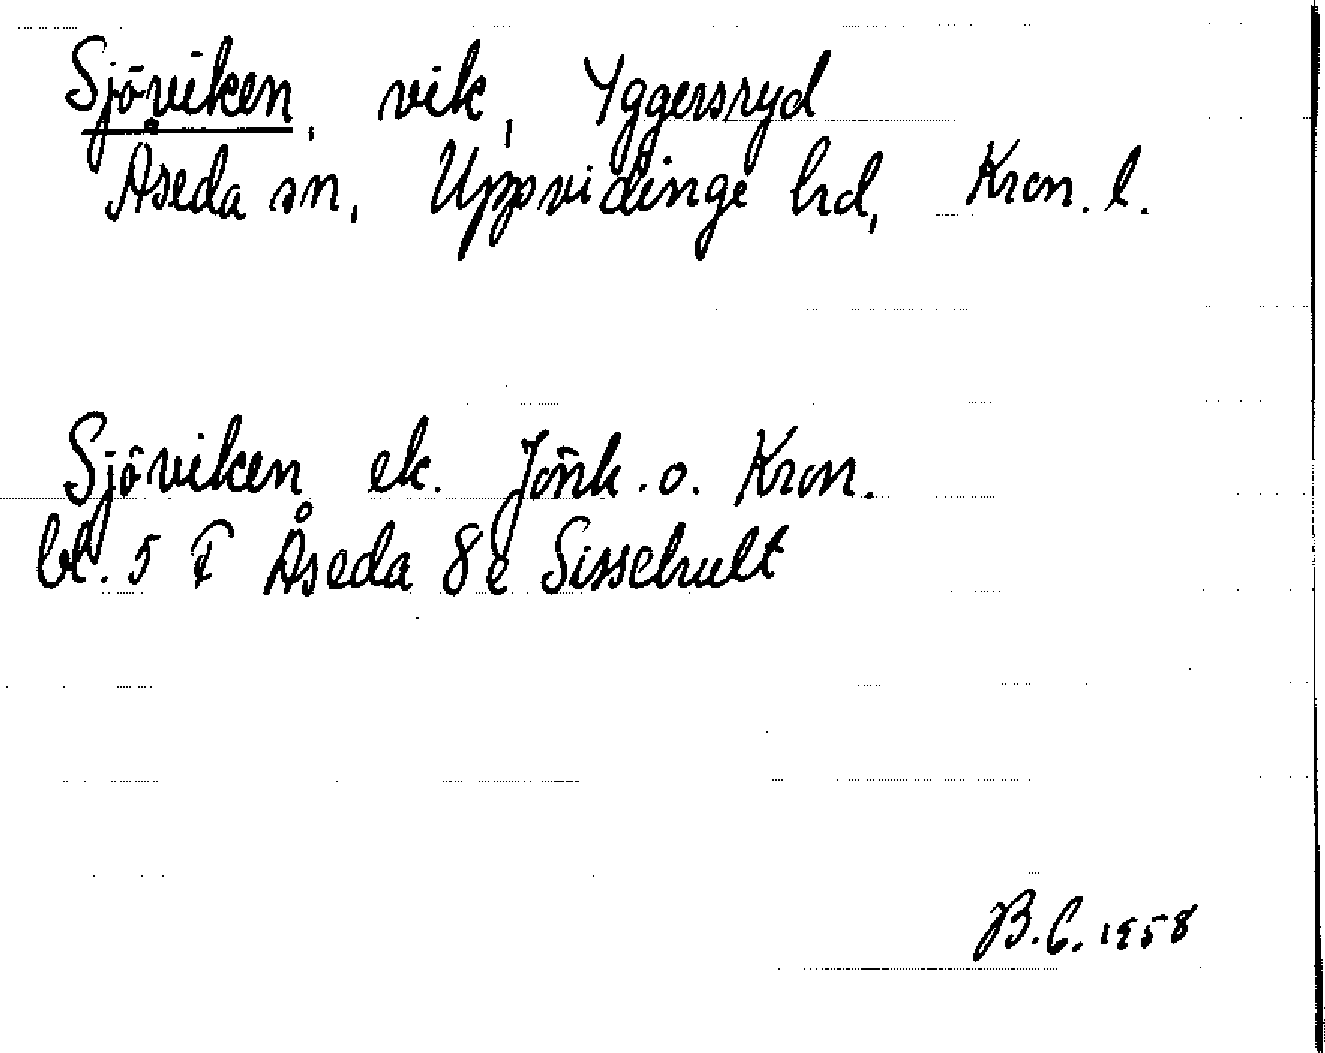 Sjöviken, vik, Yggersryd
Åseda sn, Uppvidinge hd, Kron. l.
Sjöviken ek. Jönk. o. Kron.
bl. 5 F Åseda 8e Sissehult
B.C. 1958